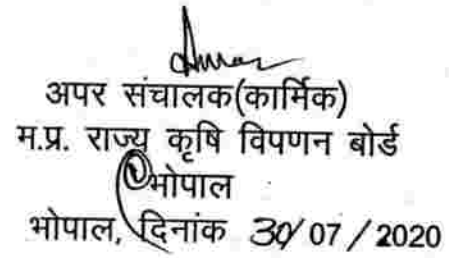 अपर संचालक(कार्मिक)
म.प्र. राज्य कृषि विपणन बोर्ड
भोपाल
भोपाल, दिनांक 30/07/2020